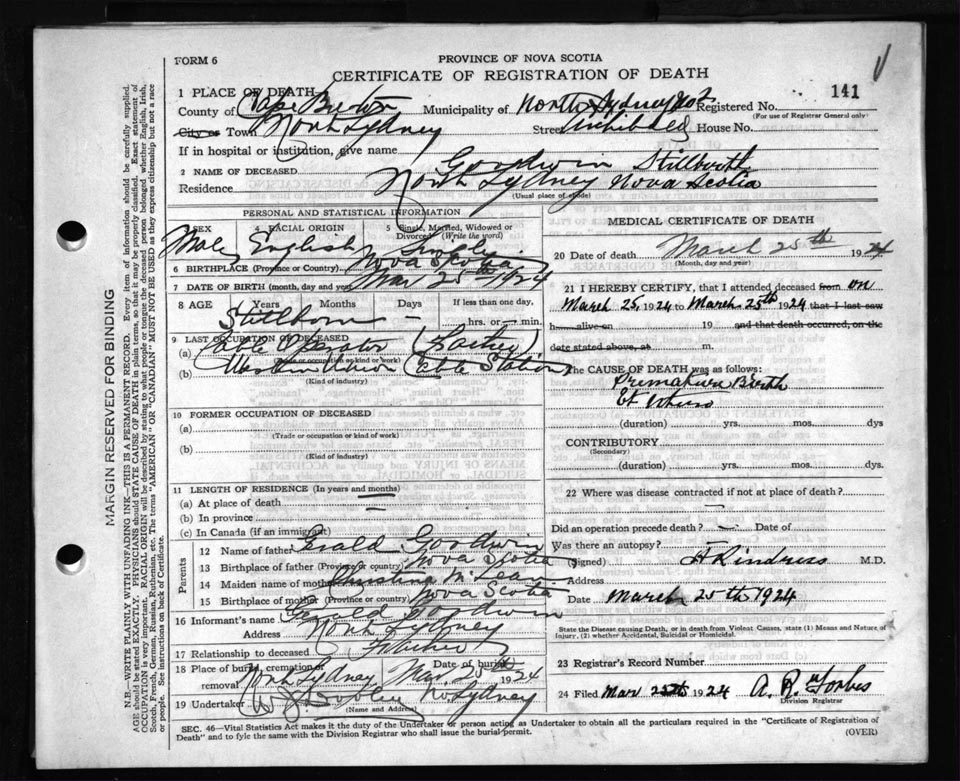 FORM 6
PROVINCE OF NOVA SCOTIA
CERTIFICATE OF REGISTRATION OF DEATH
141
1 PLACE OF DEATH
County of Cape Breton Municipality of North Sydney No 2 Registered No.
(For use of Registrar General only)
City or Town North Sydney Street Archibald House No.
If in hospital or institution, give name
2 NAME OF DECEASED Goodwin Stillbirth
Residence North Sydney Nova Scotia
(Usual place of abode)
PERSONAL AND STATISTICAL INFORMATION
3 SEX 4 RACIAL ORIGIN 5 Single, Married, Widowed or Divorced (Write the word)
Male English Single
6 BIRTHPLACE (Province or Country) Nova Scotia
7 DATE OF BIRTH (month, day and year) Mar 25th 1924
8 AGE Years Months Days If less than one day,
Stillborn – hrs. or min.
9 LAST OCCUPATION OF DECEASED
(a) Cable Operator (Father)
(b) Western Union Cable Station
(Kind of industry)
10 FORMER OCCUPATION OF DECEASED
(a)
(Trade or occupation or kind of work)
(b)
(Kind of industry)
11 LENGTH OF RESIDENCE (In years and months)
(a) At place of death —
(b) In province —
(c) In Canada (if an immigrant)
Parents
12 Name of father Gerald Goodwin
13 Birthplace of father (Province or country) Nova Scotia
14 Maiden name of mother Christina McLean
15 Birthplace of mother (Province or country) Nova Scotia
16 Informant's name Gerald Goodwin
Address North Sydney
17 Relationship to deceased Father
18 Place of burial, cremation or removal North Sydney Date of burial Mar 1924
19 Undertaker No Sydney
(Name and Address)
MEDICAL CERTIFICATE OF DEATH
20 Date of death March 25th 1924
(Month, day and year)
21 I HEREBY CERTIFY, that I attended deceased from on
March 25, 1924 to March 25th 1924 that I last saw
h alive on 19 and that death occurred, on the
date stated above, at m.
The CAUSE OF DEATH was as follows:
Premature Birth
(duration) yrs. mos. dys
CONTRIBUTORY
(Secondary)
(duration) yrs. mos. dys.
22 Where was disease contracted if not at place of death?
—
Did an operation precede death? — Date of
Was there an autopsy? —
(Signed) M.D.
Address
Date March 25th 1924
State the Disease causing Death, or in death from Violent Causes, state (1) Means and Nature of
Injury, (2) whether Accidental, Suicidal or Homicidal.
23 Registrar's Record Number
24 Filed Mar 25th 1924 A. R. Forbes
Division Registrar
SEC. 46—Vital Statistics Act makes it the duty of the Undertaker or person acting as Undertaker to obtain all the particulars required in the "Certificate of Registration of
Death" and to fyle the same with the Division Registrar who shall issue the burial permit.
(OVER)
MARGIN RESERVED FOR BINDING
N.B.—WRITE PLAINLY WITH UNFADING INK—THIS IS A PERMANENT RECORD. Every item of information should be carefully supplied.
AGE should be stated EXACTLY. PHYSICIANS should STATE CAUSE OF DEATH in plain terms, so that it may be properly classified. Exact statement of
OCCUPATION is very important. RACIAL ORIGIN will be described by stating to what people or tongue the deceased person belonged whether English, Irish,
Scotch, French, German, Russian, Ruthenian, etc. The terms "AMERICAN" or "CANADIAN" MUST NOT BE USED as they express citizenship but not a race
or people. See instructions on back of Certificate.